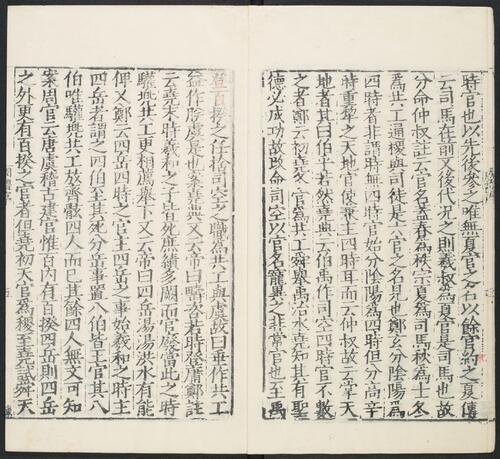 時官也以先後參之唯無夏官之名以餘官約之夏傳
云司馬在前又後代况之則羲叔為夏官是司馬也故
分命仲叔註云官名蓋春為秩宗夏為司馬秋為士冬
為共工通稷與司徒是六官之名見也鄭玄分陰陽為
四時者非謂時無四時官始分陰陽為四時但分高辛
時重犂之天地官使兼主四時耳而云仲叔故云掌天
地者其曰伯乎若然堯典云伯禹作司空四時官不數
之者鄭云初堯冬官為共工舜舉禹治水堯知其有聖
德必成功故改命司空以官名寵異之非常官也至禹
登百揆之任捨司空之職為共工與虞故曰垂作共工
益作朕虞是也案堯典又云帝曰疇咨若時登庸鄭註
云堯末時羲和之子皆死庶績多闕而官廢當此之時
驩兠共工更相薦舉下又云帝曰四岳湯湯洪水有能
俾乂鄭云四岳四時之官主四岳之事始羲和之時主
四岳者謂之四伯至其死分岳事置八伯皆王官其八
伯唯驩兠共工放齊鯀四人而已其餘四人無文可知
案周官云唐虞稽古建官惟百內有百揆四岳則四岳
之外更有百揆之官者但堯初天官為稷至堯試舜天